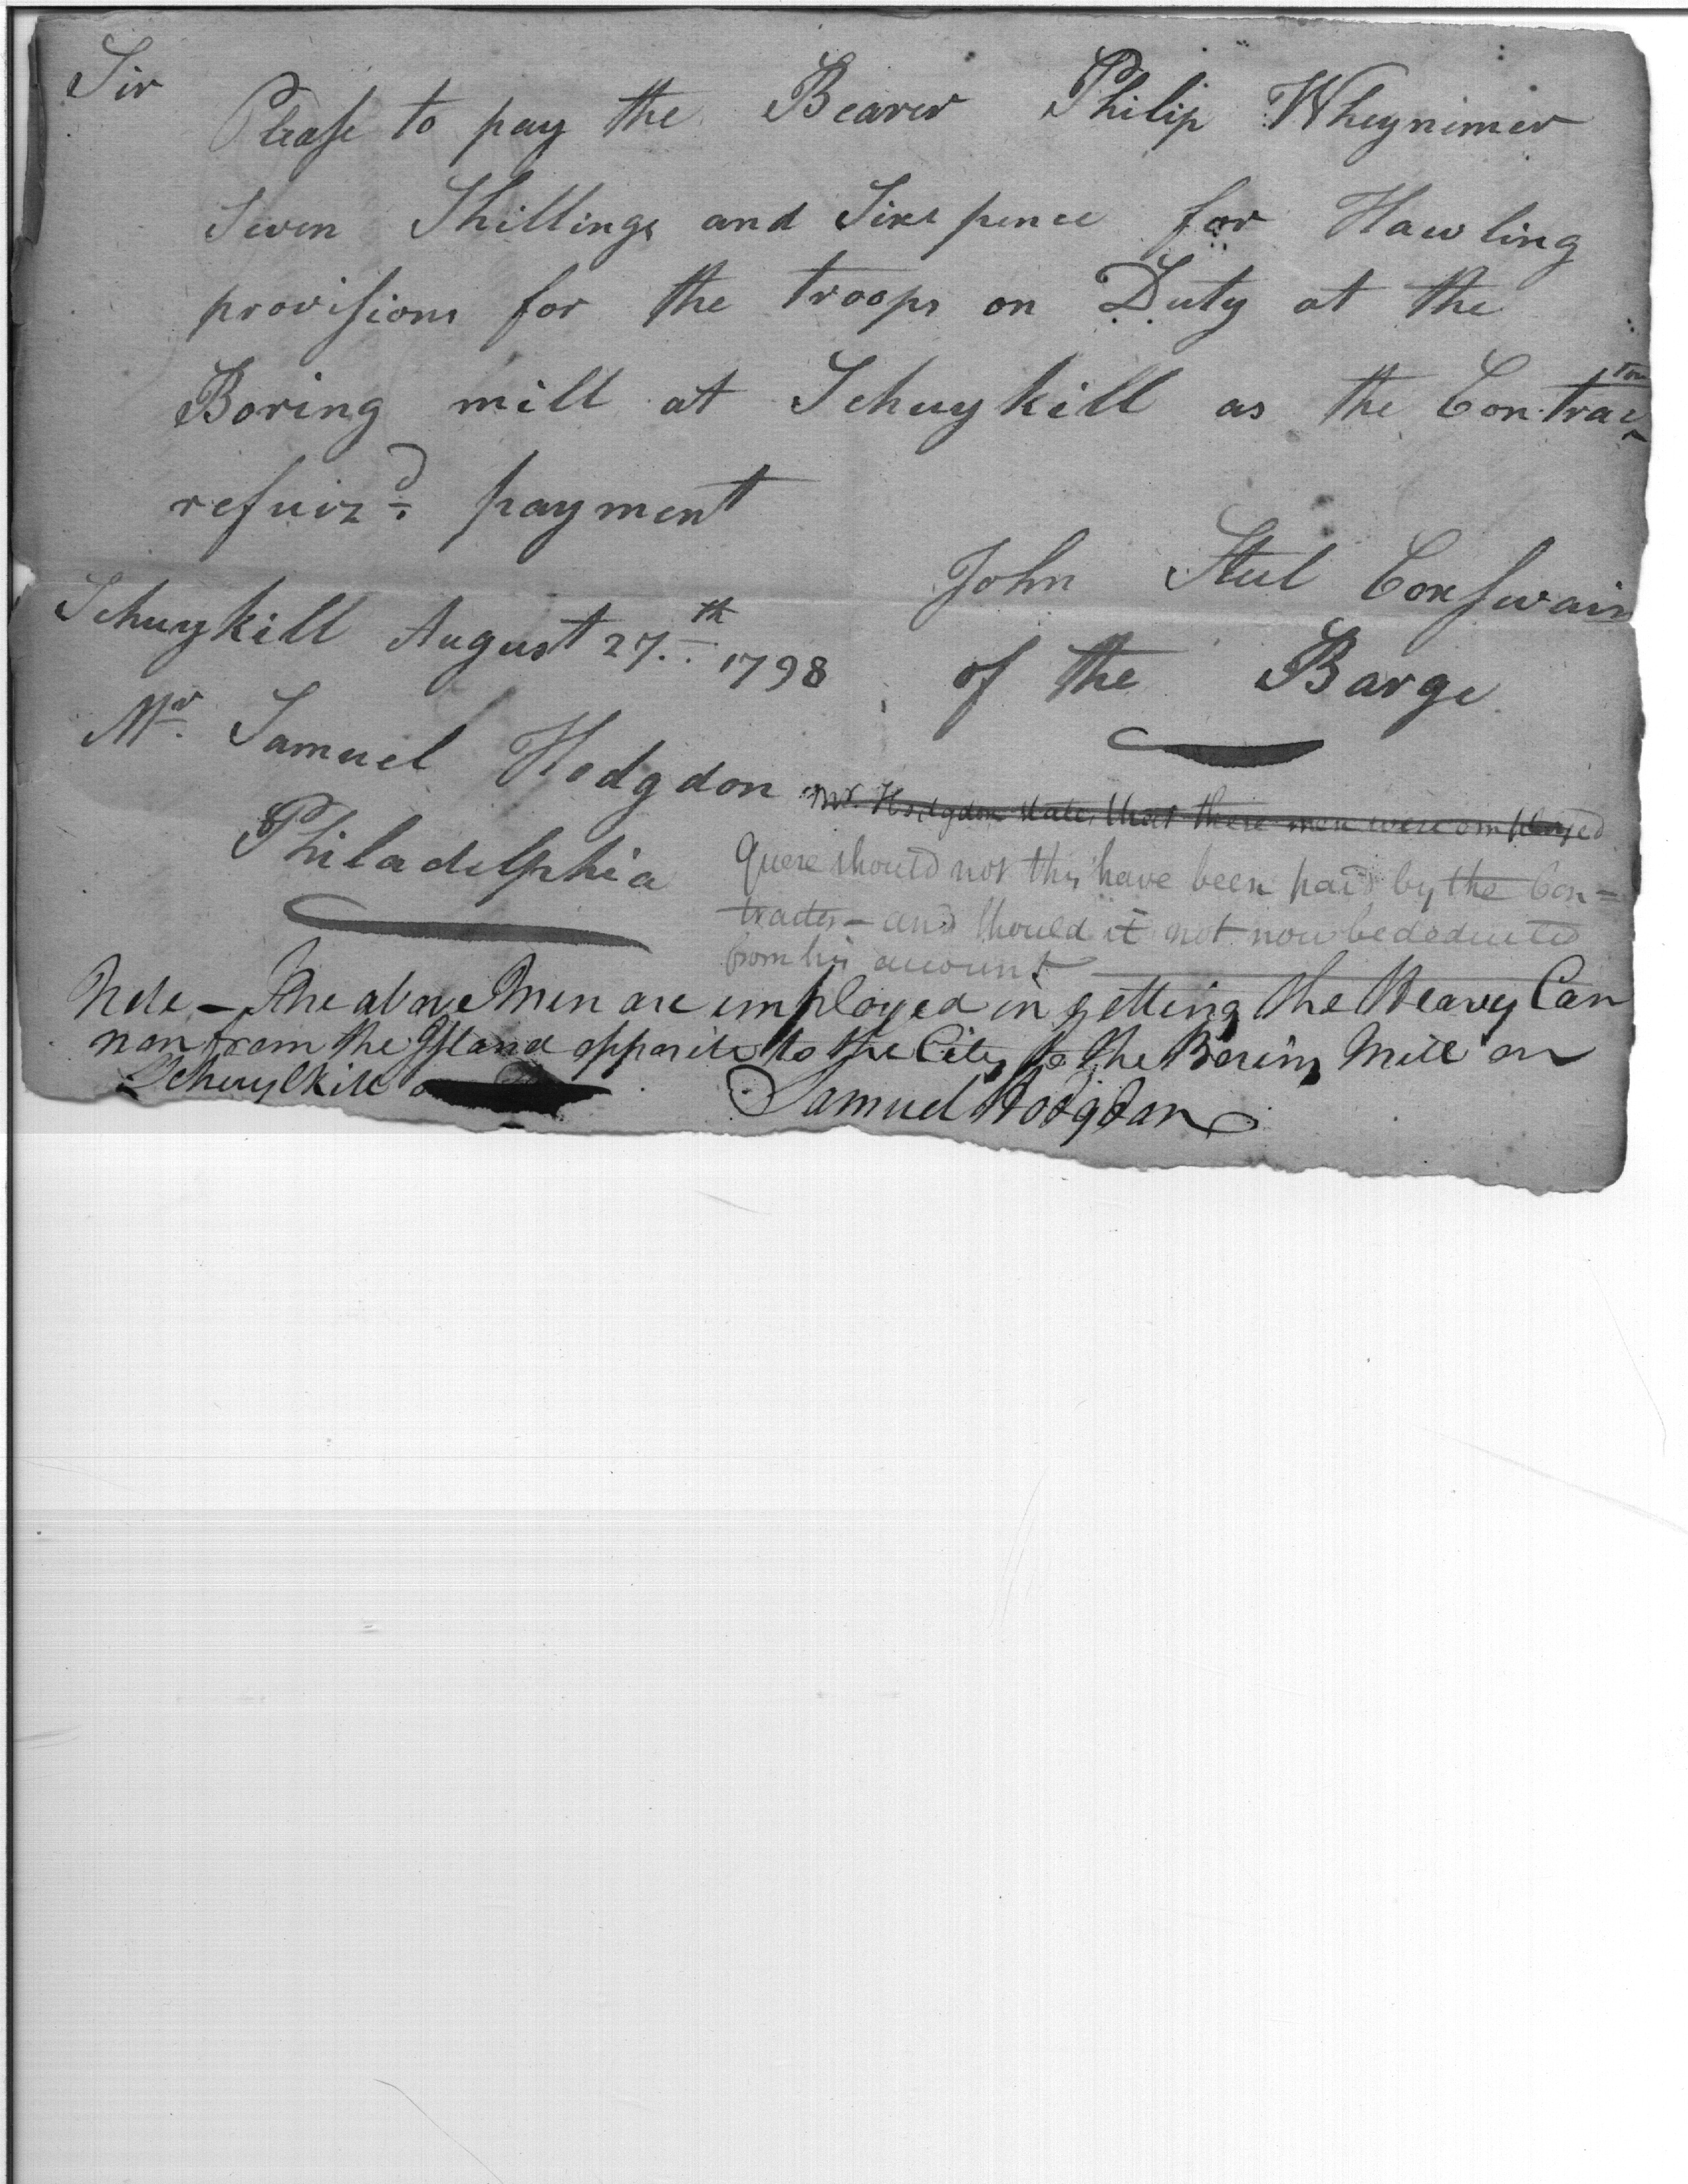 Sir
Please to pay the Bearer Philip Wheynimer
Seven Shillings and Sixe pence for Hawling
provisions for the troops on Duty at the
Boring mill at Schuykill as the Contractor
refuiz'd payment
John Steel Coxswain
of the Barge
Schuykill August 27th 1798
Mr. Samuel Hodgdon
Philadelphia
Mr. Hodgdon states that these men were employed
Quere should not this have been paid by the Con=
tractor - and should it not now be deducted
from his account
Note - The above Men are employed in getting the Heavy Can
non from the Island opposite to the City to the Boring Mill on
Schuylkill
Samuel Hodgdon